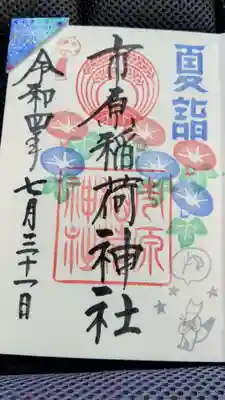 夏詣
市原稲荷神社
令和四年
七月三十一日
市原
稲荷
神社